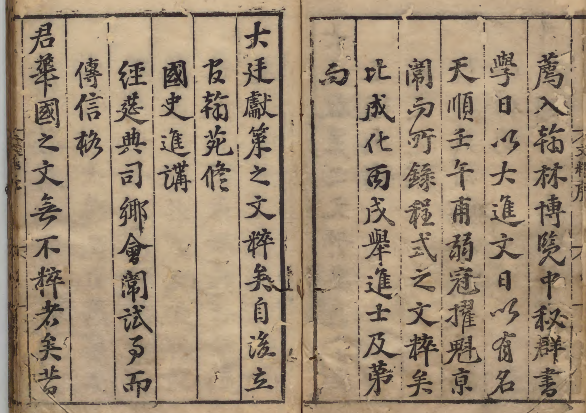 薦入翰林博覽中秘群書
學日以大進文日以有名
天順壬午甫弱冠擢魁京
闈而所錄程式之文粹矣
比成化丙戌舉進士及第
而
大廷獻策之文粹矣自後立
官翰苑修
國史進講
經筵典司鄉會闈試予而
傳信格
君華國之文無不粹者矣昔